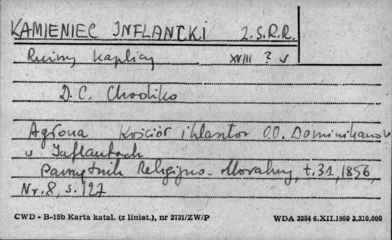 KAMIENIEC INFLANCKI Z.S.R.R.
Ruiny kaplicy XVIII ? w
D. C. Chodźko
Agłona Kościół i klasztor O.O. Dominikanów
w Inflantach
Pamiętnik Religijno-Moralny, t.31, 1856,
Nr. 8, s. 127
CWD - B-15b Karta katal. (z liniat.), nr 2731/ZW/P WDA 3354 6.XII.1960 3.310.000